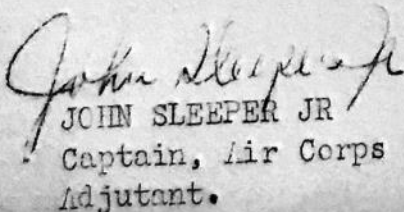 John Sleeper Jr
JOHN SLEEPER JR
Captain, Air Corps
Adjutant.